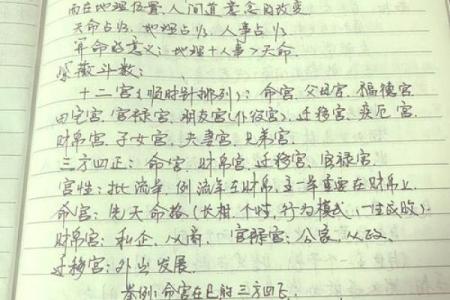 而在地理位置、人间道意念的改变
天命占⅓、地理占⅓、人事占⅓.
算命的意义:地理+人事>天命.
紫薇斗数:
十二宫(顺时针排列):命宫、父母宫、福德宫
田宅宫、官禄宫、朋友宫(仆役宫)、迁移宫、疾厄宫
财帛宫、子女宫、夫妻宫、兄弟宫
三方四正:命宫、财帛宫、迁移宫、官禄宫.
宫性:批流年,例流年在财帛,主一年重要在财帛上
命宫:先天命格(长相、个性,行为模式,一生成败).
财帛宫:私企、从商、官禄宫:公家,从政.
迁移宫:外出发展.
举例:命宫在巳的三方四正.